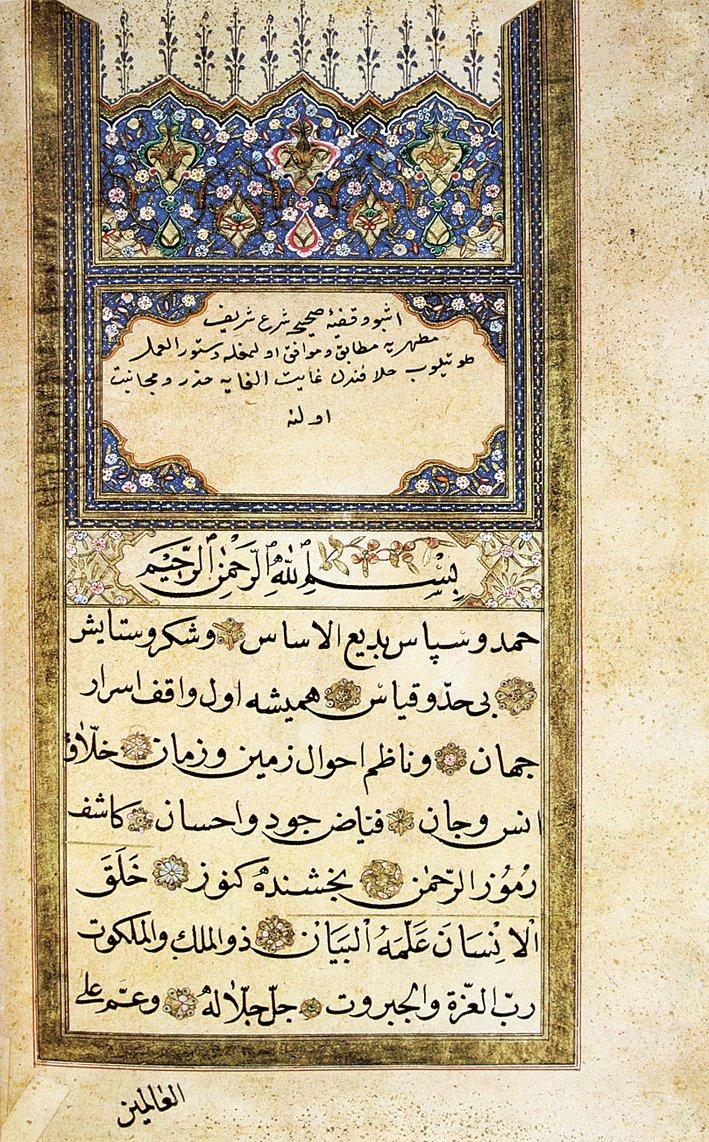 اشبو وقفیهٔ صحیح شرع شریف
مطهریه مطابق و موافق اولمغله دستور العمل
طوتیلوب خلافندن غایت الغایه حذر و مجانبت
اولنه
بِسْمِ اللّٰهِ الرَّحْمٰنِ الرَّحِيْمِ
حمد و سپاس بدیع الاساس وشکر وستایش
بی حدّ و قیاس همیشه اول واقف اسرار
جهان وناظم احوال زمین و زمان خلّاق
انس وجان فیّاض جود و احسان کاشف
رُمُوْز الرّحمٰن بخشندهٔ کنوز خَلَقَ
الْاِنْسَانَ عَلَّمَهُ الْبَيَانَ ذو الملك والملكوت
ربّ العزّة والجبروت جلّ جلاله وعـمّ على
العالمين